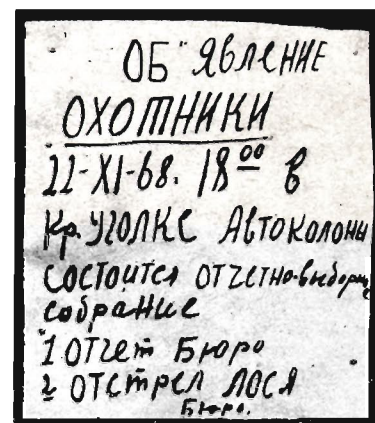 ОБ"ЯВЛЕНИЕ
ОХОТНИКИ
22-XI-68. 18⁰⁰ в
Кр. УГОЛКЕ АвтоКолоны
состоится отчетно-выборное
собрание
1 Отчет Бюро
2 ОТСТРЕЛ ЛОСЯ
Бюро.